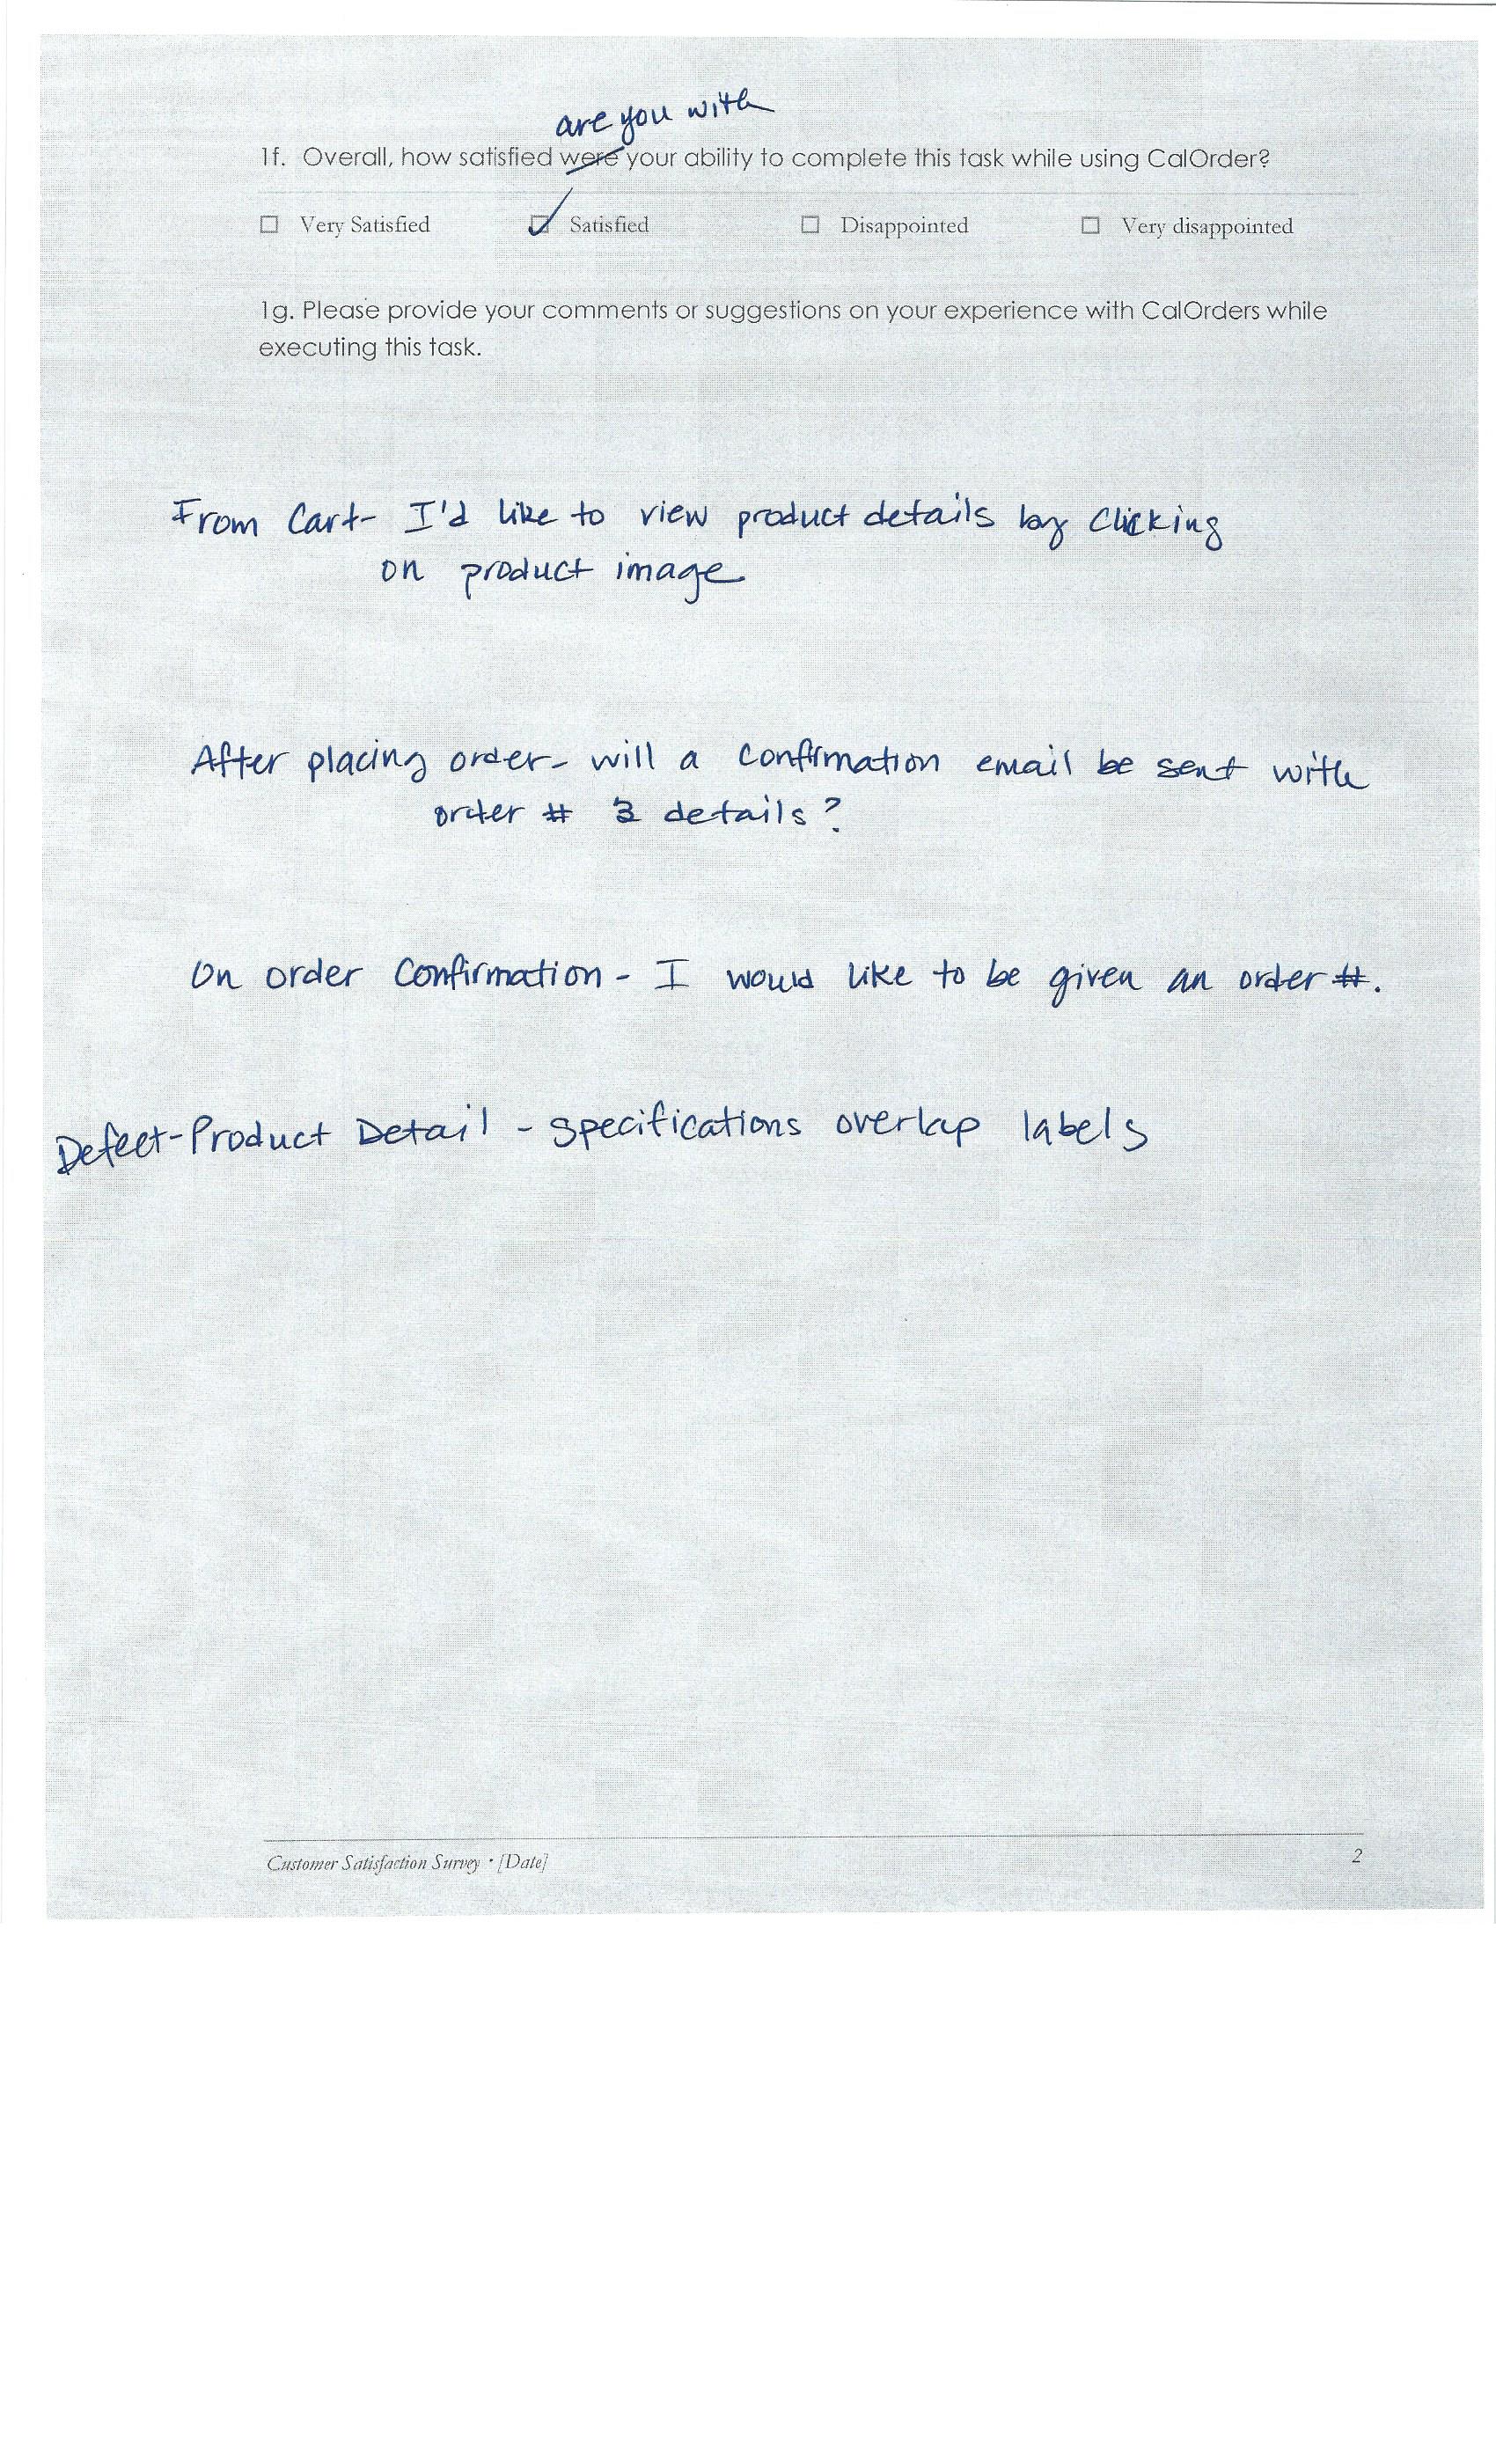 are you with
1f. Overall, how satisfied were your ability to complete this task while using CalOrder?
Very Satisfied Satisfied Disappointed Very disappointed
1g. Please provide your comments or suggestions on your experience with CalOrders while
executing this task.
From Cart- I'd like to view product details by clicking
on product image
After placing order- will a confirmation email be sent with
order # & details?
On order Confirmation - I would like to be given an order #.
Defect-Product Detail - specifications overlap labels
Customer Satisfaction Survey • [Date] 2